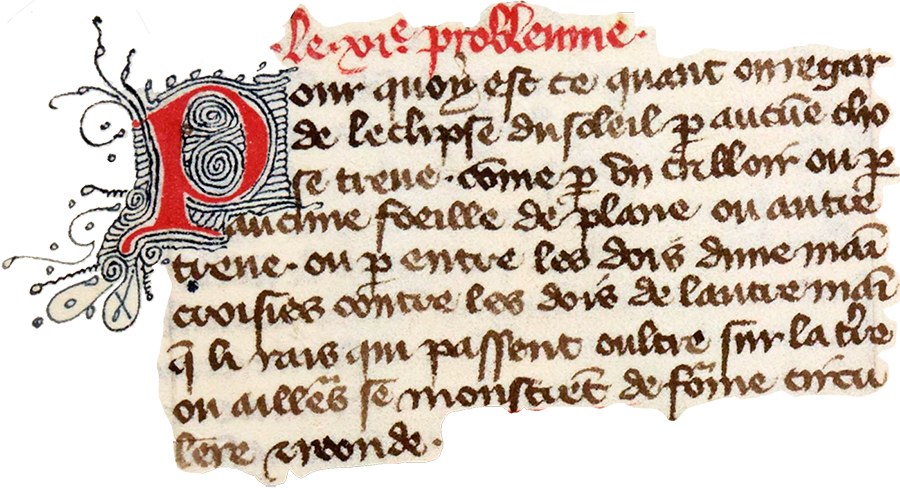 ·le·xie problemme·
Pour quoy est ce quant on regar
de leclipse du soleil p̲ aucūe cho
se treue· cōme p̲ vn culloir ou p̲
aucune foeille de plane ou autre
treue· ou p̲ entre les dois dune maī
croisies contre les dois de lautre maī
q̄ li rais qui passent oultre sur la tr̄re
ou aillērs se monstrēt de fōrme circu
lēre ⁊ ronde·